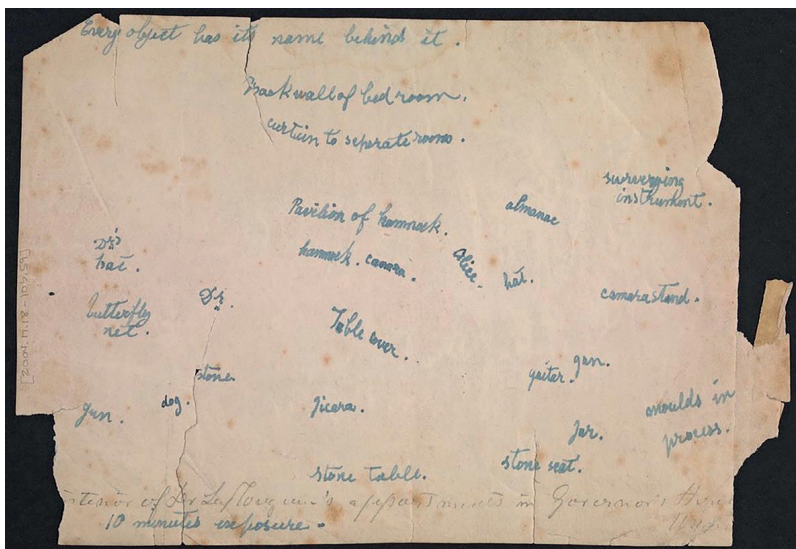 Every object has its name behind it.
Back wall of bed room.
curtain to seperate rooms.
surveying
instrument.
almanac
Pavilion of hammock.
Dr's
hat.
hammock. camara.
Alice.
hat.
Dr.
camara stand.
butterfly
net.
Table cover.
gun.
stone
guitar.
dog.
Jicara.
moulds in
process.
gun.
Jar.
stone table.
stone seat.
of Dr Le Plongeon's appartments in Governor's
10 minutes exposure.